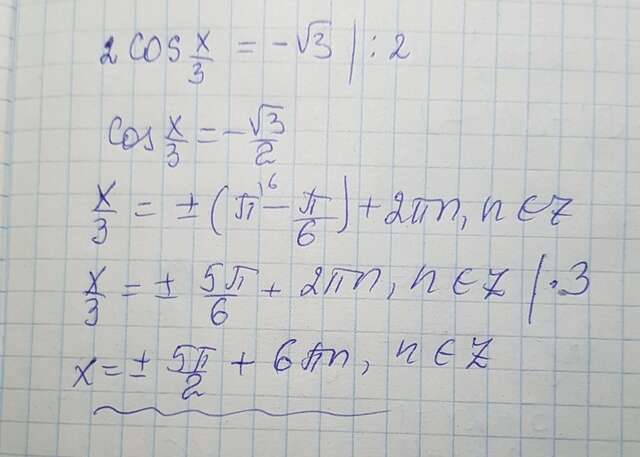 2 cos x/3 = -√3 | : 2
cos x/3 = -√3/2
x/3 = ± (π^6 - π/6) + 2πn, n ∈ Z
x/3 = ± 5π/6 + 2πn, n ∈ Z | · 3
x = ± 5π/2 + 6πn, n ∈ Z